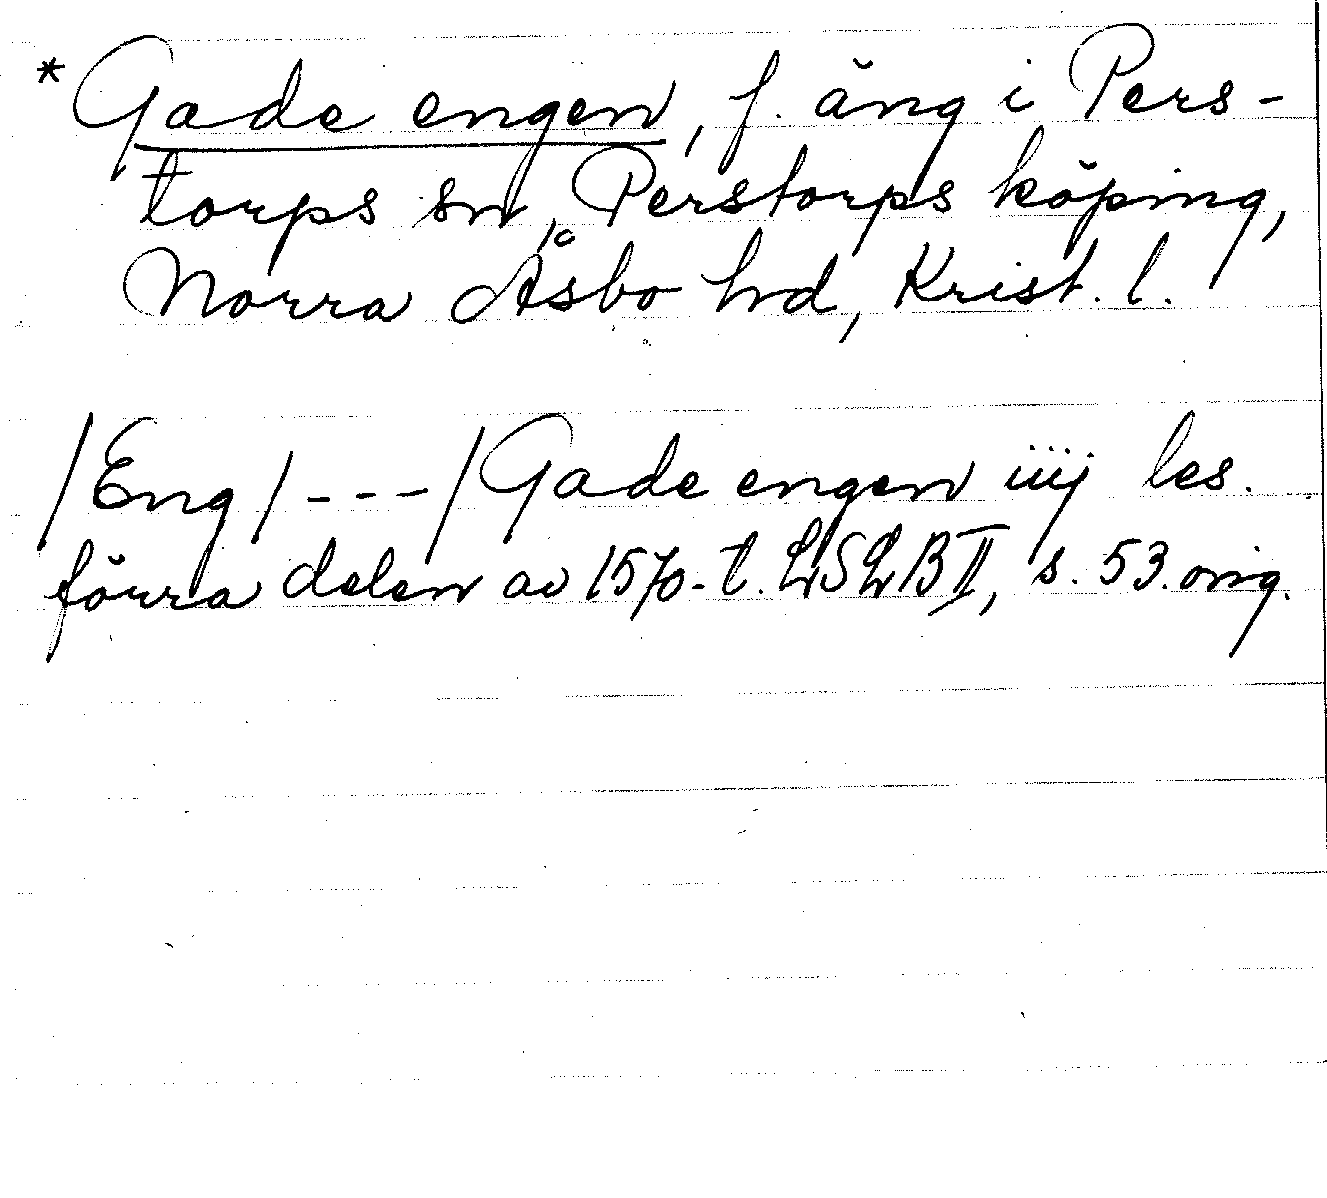 * Gade engen, f. äng i Pers-
torps sn, Perstorps köping,
Norra Åsbo hd, Krist. l.
/Eng/---/Gade engen iiij les.
förra delen av 1570-t. LSLB II, s. 53. orig.